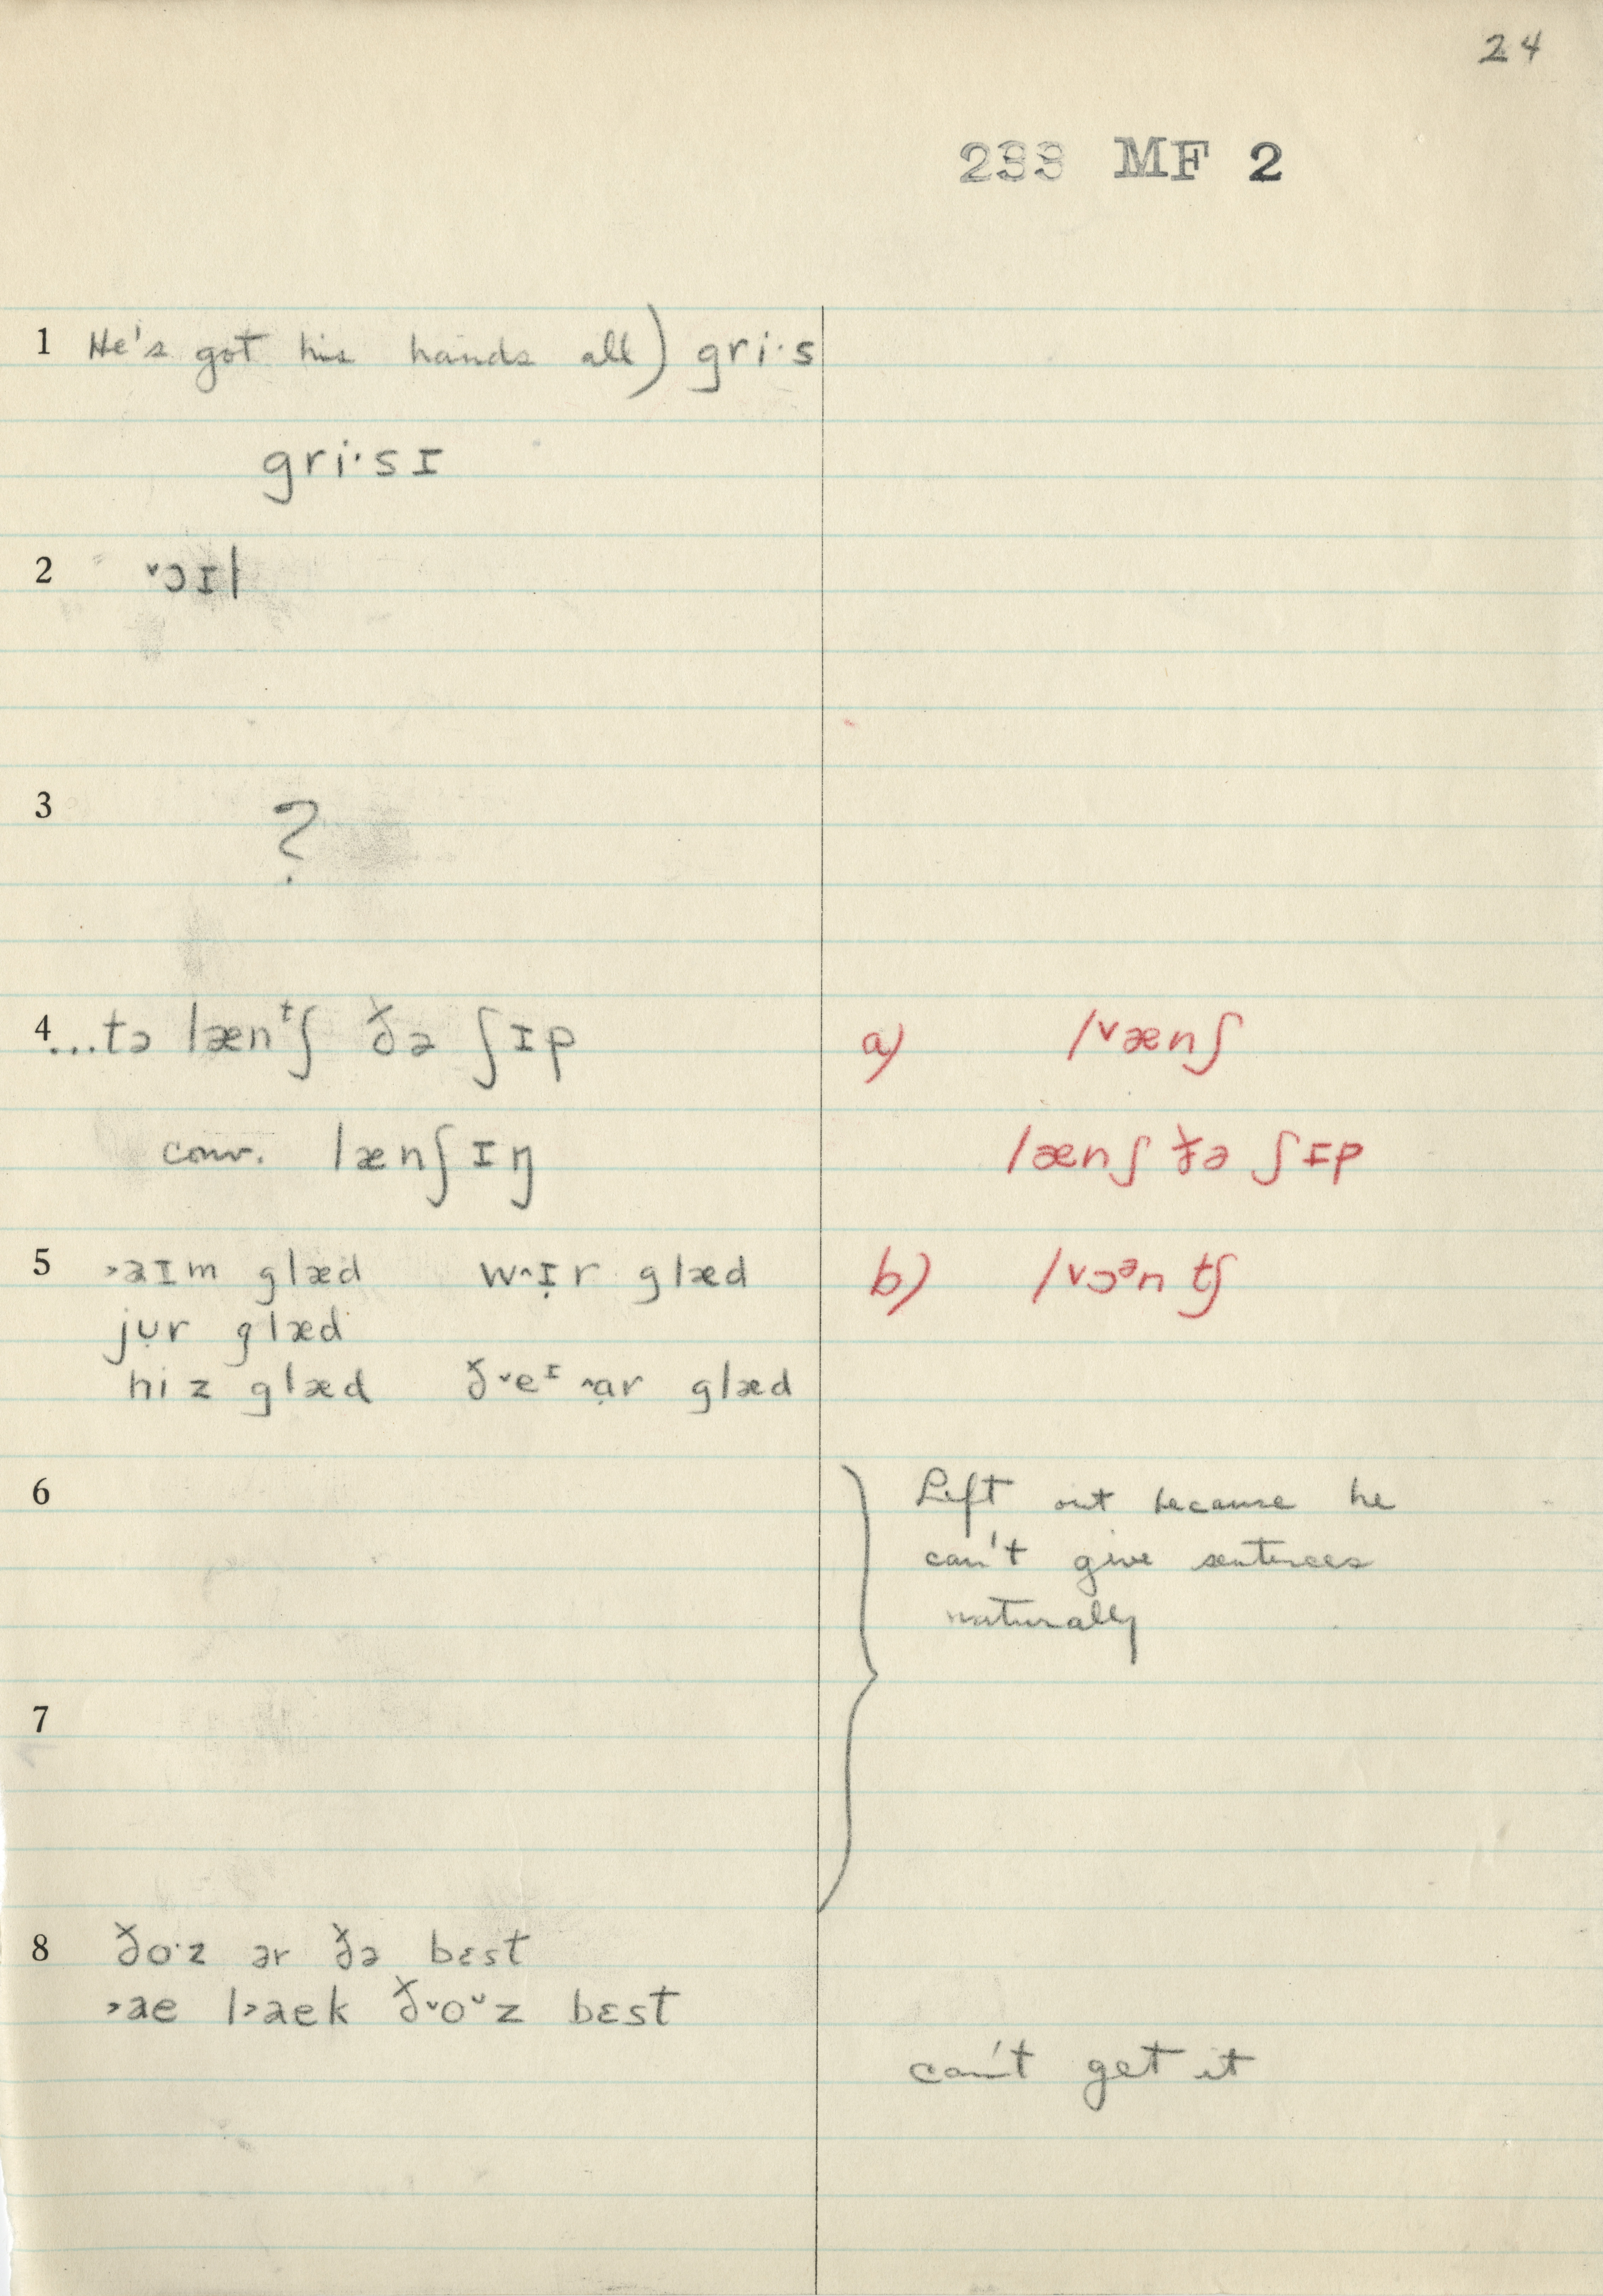 24
233 MF 2
1 He's got his hands all) gri·s
gri·sɪ
2 ˅ɔɪl
3 ?
4 ...tə lænᵗʃ ðə ʃɪp
conv. lænʃɪŋ
a) l˅ænʃ
lænʃ ðə ʃɪp
5 ˃aɪm glæd w˄ɪ̣r glæd
jụr glæd
hiz glæd ð˅eᶦ ˄ɑ̣r glæd
b) l˅ɔᵊn tʃ
6
Left out because he
can't give sentences
naturally
7
8 ðo·z ər ðə bɛst
˃ae l˃aek ð˅oᵕz bɛst
can't get it